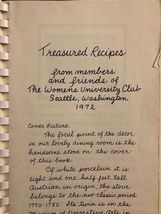 Treasured Recipes
from members
and friends of
The Womens University Club
Seattle, Washington
1972
Cover Picture.
The focal point of the decor
in our lovely dining room is the
handsome stove on the cover
of this book.
Of white porcelain, it is
eight and one half feet tall
Austrian in origin, the stove
belongs to the neo classic period
1770-1780. Its twin is in the
Museum of Decorative Arts in